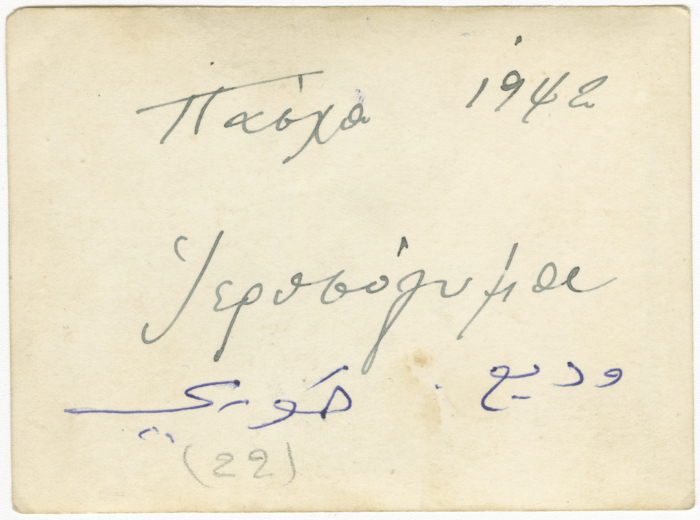 Πάσχα 1942
Ἱερoσόλυμα
وديع . خوري
(22)